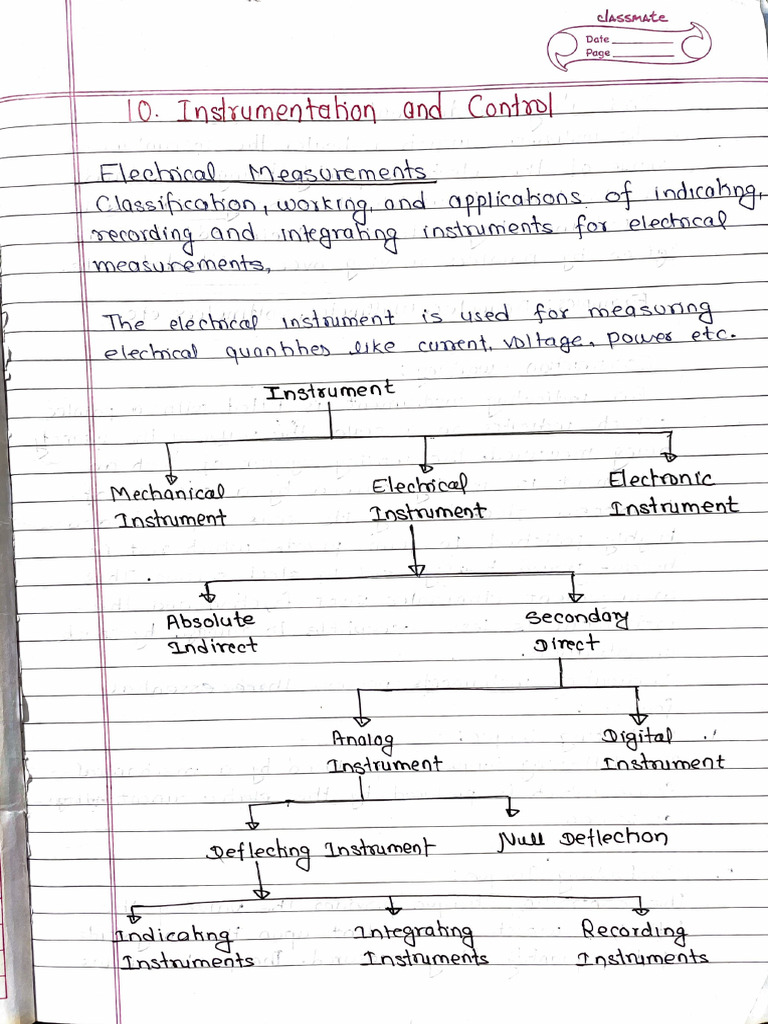 classmate
Date
Page
10. Instrumentation and Control
Electrical Measurements
Classification, working, and applications of indicating,
recording and integrating instruments for electrical
measurements,
The electrical instrument is used for measuring
electrical quantities like current, voltage, power etc.
Instrument
Mechanical Electrical Electronic
Instrument Instrument Instrument
Absolute Secondary
Indirect Direct
Analog Digital
Instrument Instrument
Deflecting Instrument Null Deflection
Indicating Integrating Recording
Instruments Instruments Instruments